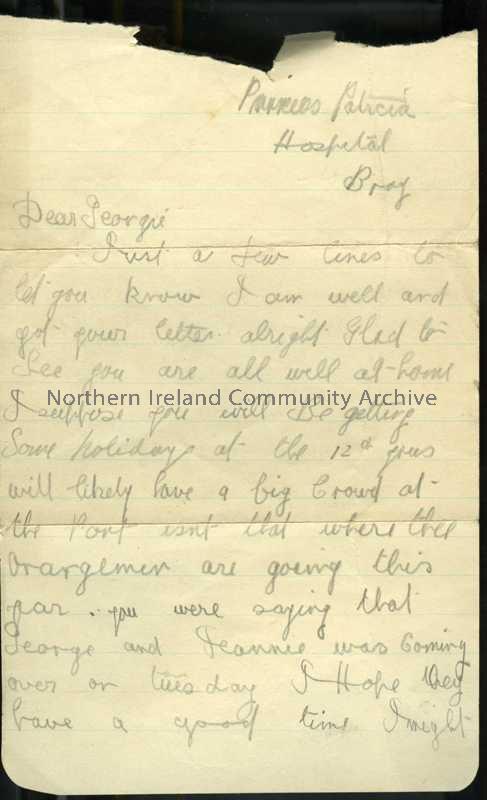 Princes Patricia
Hospital
Bray
Dear Georgie
Just a few lines to
let you know I am well and
got your letter alright Glad to
See you are all well at-home
Northern Ireland Community Archive
I suppose you will Be getting
Some holidays at the 12th yous
will likely have a big Crowd at
the Port isnt that where the
Orangemen are going this
year. you were saying that
George and Jeannie was Coming
over on tuesday I Hope they
have a good time I might